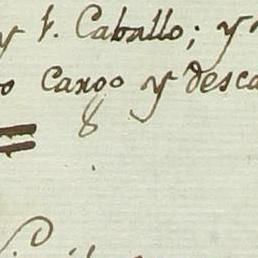 y 1. Caballo; y
o Cargo y desca
= 8